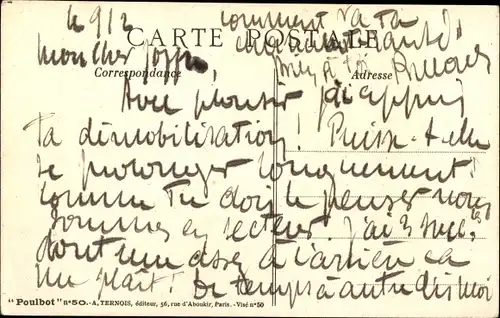 Le 9/2
comment va ta
charmante santé
CARTE POSTALE
mon cher
bien à toi
Correspondance
Adresse
Avec plaisir j'ai appris
ta démobilisation ! Puisse-t-elle
se prolonger longuement !
comme tu dois le penser nous
sommes en secteur. J'ai 3
dont une assez à l'arrière ça
me plaît ! De temps à autre dis moi
"Poulbot" n° 50.-A, TERNOIS, éditeur, 56, rue d'Aboukir, Paris. - Visé n° 50